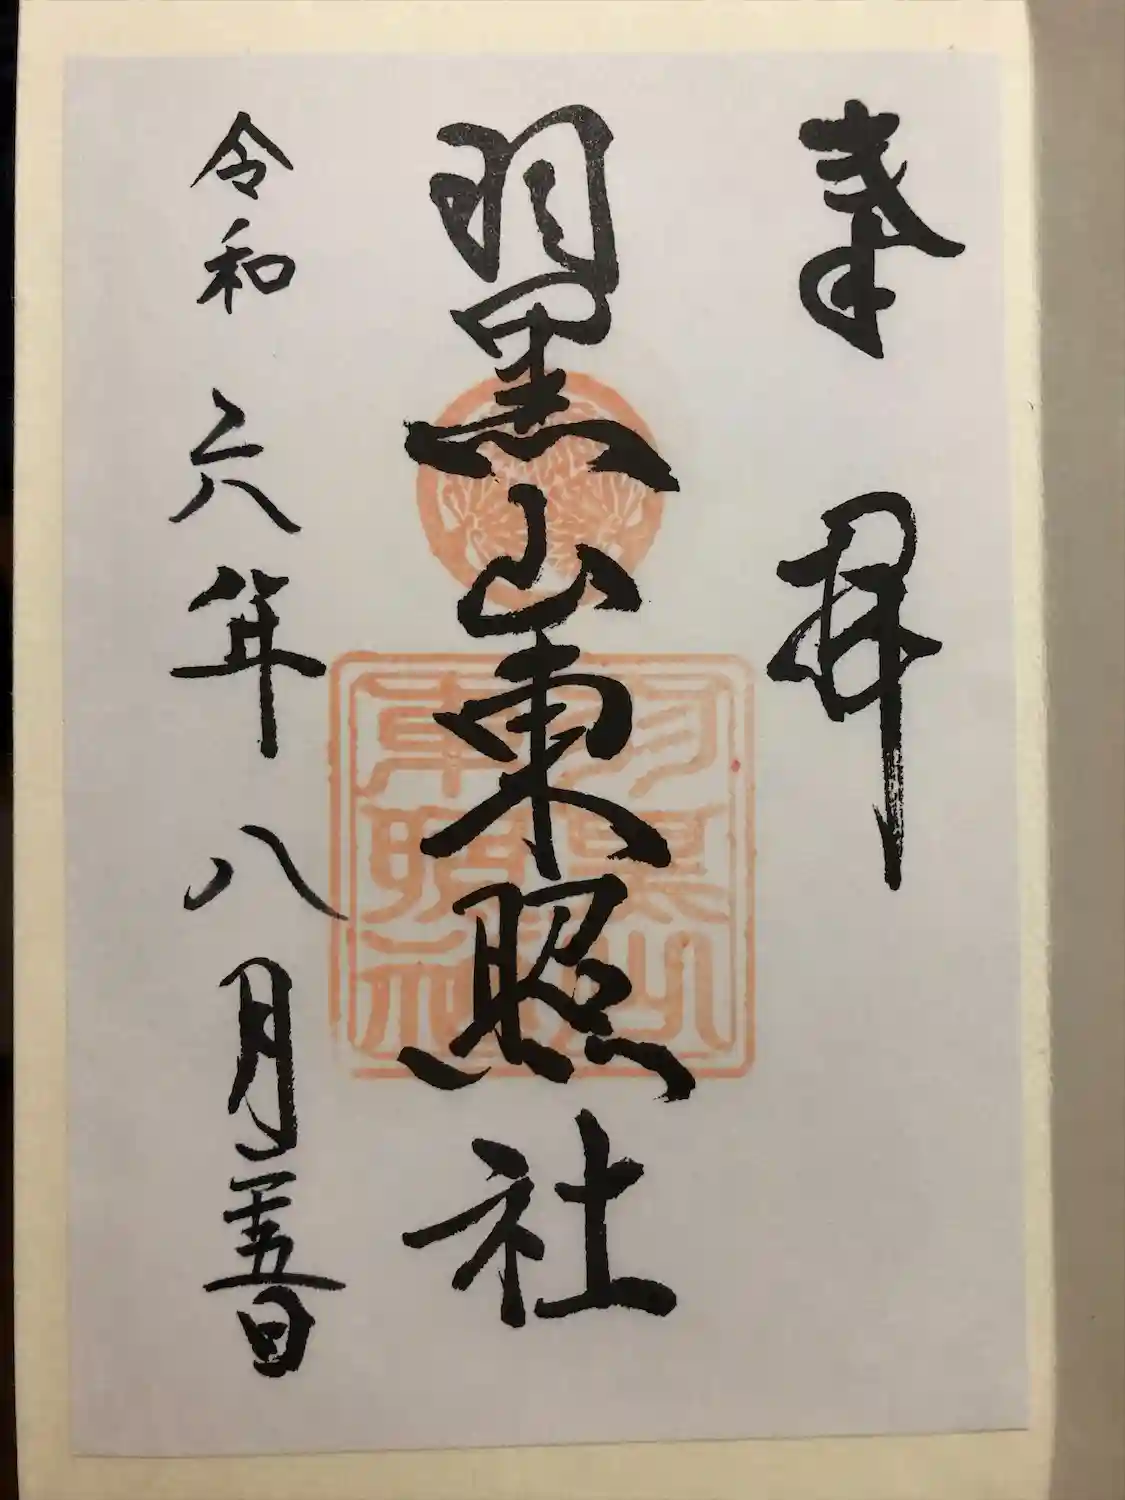 奉拝
羽黒山東照社
羽黒山
東照社
令和六年八月二十五日